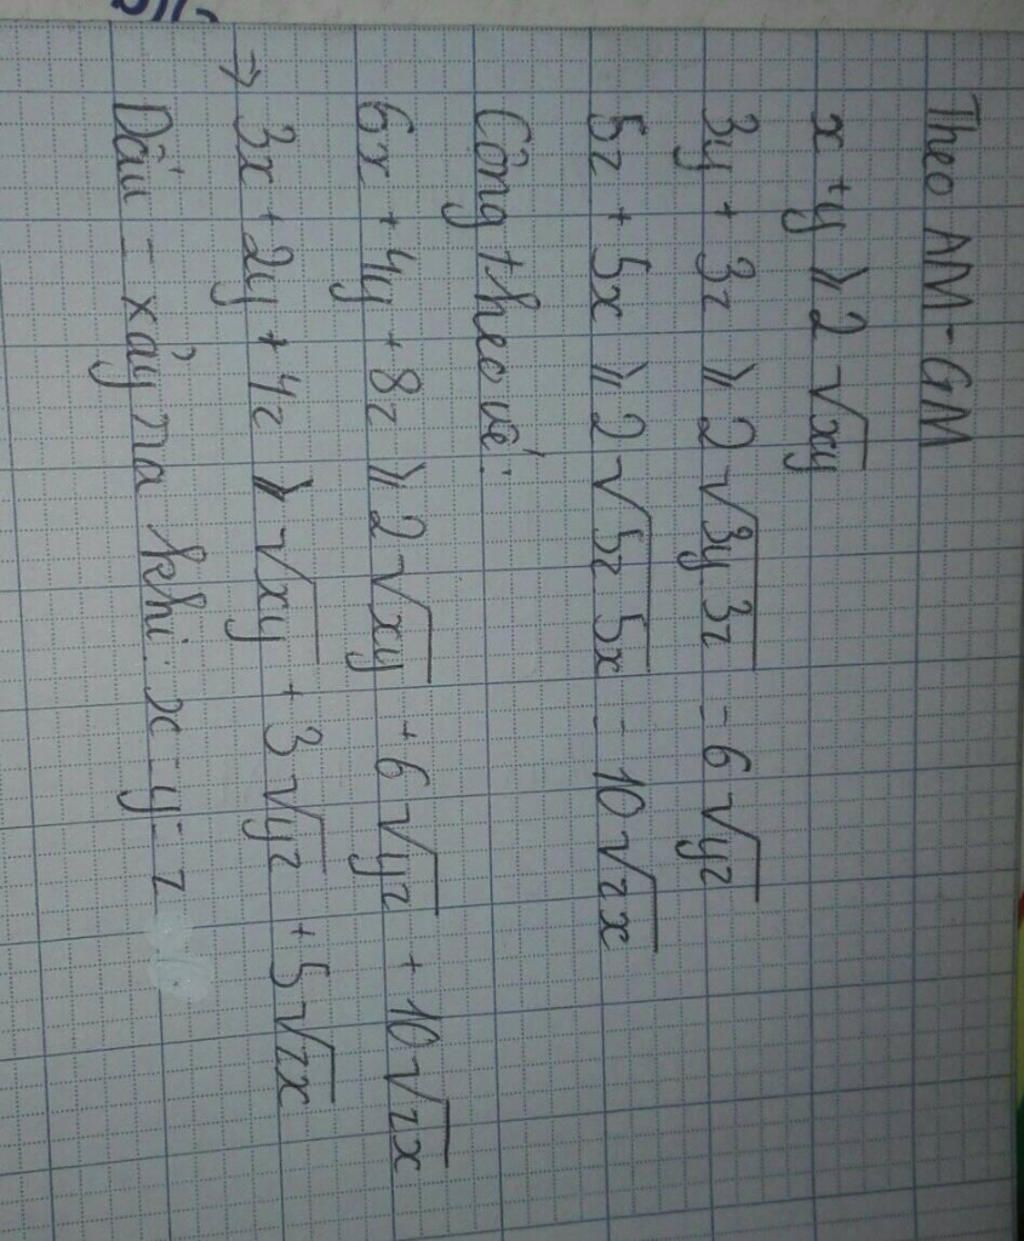 Theo AM-GM
x + y ⩾ 2√xy
3y + 3z ⩾ 2√3y 3z = 6√yz
5z + 5x ⩾ 2√5z 5x = 10√zx
Cộng theo vế:
6x + 4y + 8z ⩾ 2√xy + 6√yz + 10√zx
→ 3x + 2y + 4z ⩾ √xy + 3√yz + 5√zx
Dấu = xảy ra khi: x = y = z